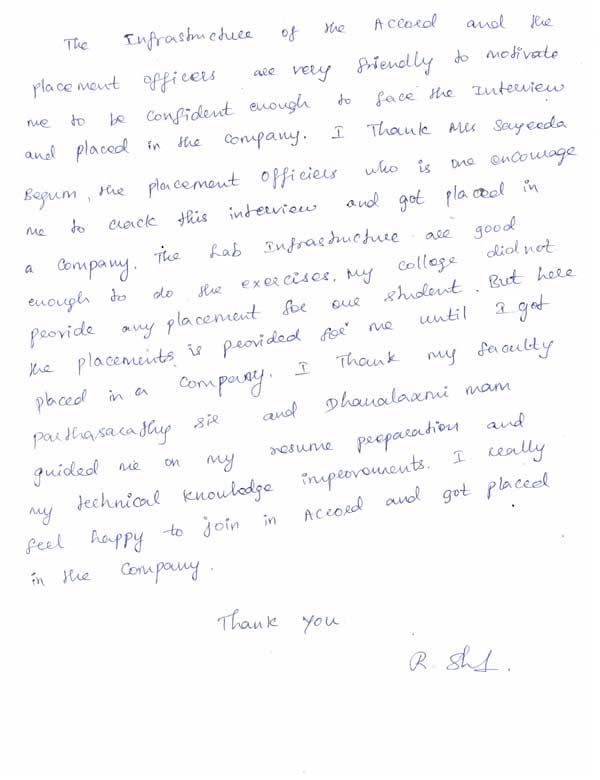 The Infrastructure of the Accord and the
placement officers are very friendly to motivate
me to be confident enough to face the Interview
and placed in the company. I Thank Mrs Sayeeda
Begum, the placement officiers who is one encourage
me to crack this interview and got placed in
a company. The Lab Infrastructure are good
enough to do the exercises. My college did not
provide any placement for our student. But here
the placements is provided for me until I got
placed in a company. I Thank my faculty
parthasarathy sir and Dhanalaxmi mam
guided me on my resume preparation and
my technical knowledge improvements. I really
feel happy to join in Accord and got placed
in the company.
Thank you
R.